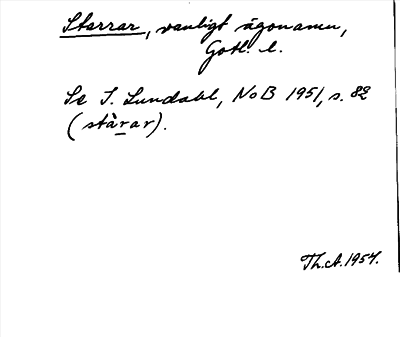 Starrar, vanligt ägonamn,
Gotl. l.
Se I. Lundahl, NoB 1951, s. 82
(stàrar).
Th.A. 1954.